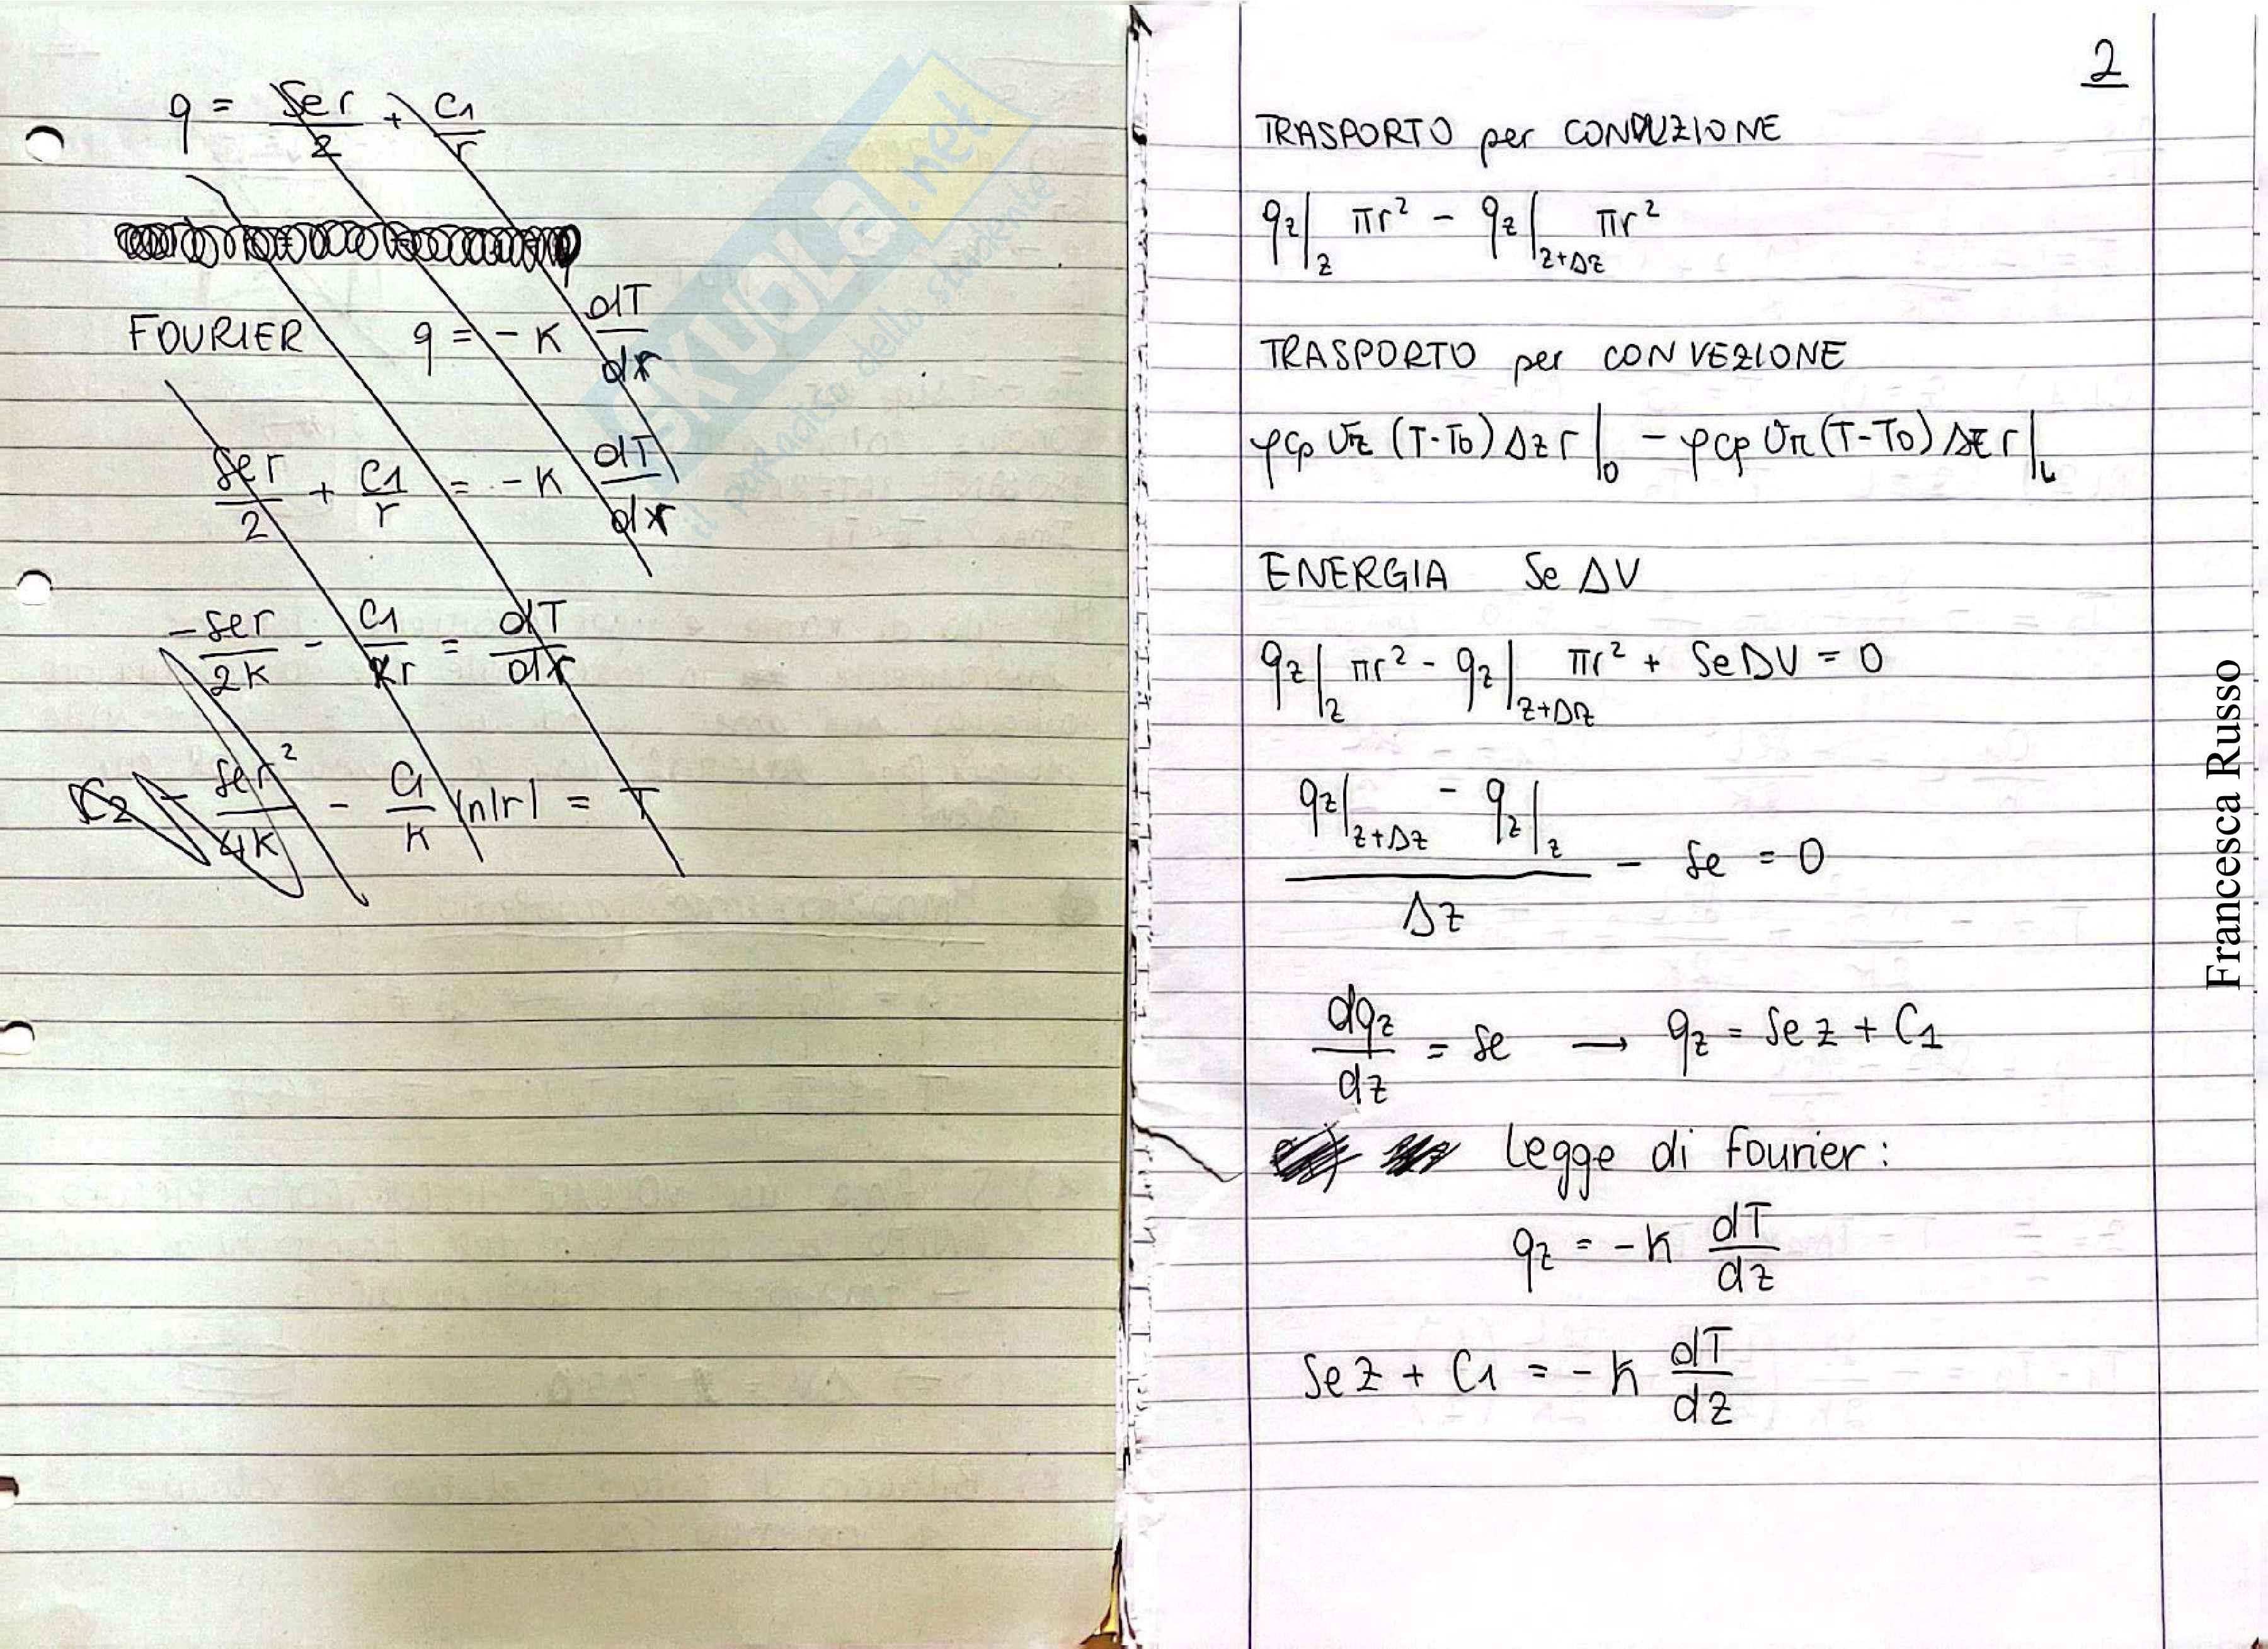 q = Se r / 2 + C1 / r
FOURIER q = - K dT/dr
Se r / 2 + C1 / r = - K dT/dr
- Se r / 2K - C1 / Kr = dT/dr
C2 - Se r² / 4K - C1 / K ln|r| = T
SKUOLA.net
il paradiso dello studente
2
TRASPORTO per CONDUZIONE
qz|z πr² - qz|z+Δz πr²
TRASPORTO per CONVEZIONE
ρcp vz (T-T0) Δz r|0 - ρcp vz (T-T0) Δz r|L
ENERGIA Se ΔV
qz|z πr² - qz|z+Δz πr² + Se ΔV = 0
(qz|z+Δz - qz|z) / Δz - Se = 0
dqz/dz = Se → qz = Se z + C1
Legge di Fourier:
qz = - K dT/dz
Se z + C1 = - K dT/dz
Francesca Russo